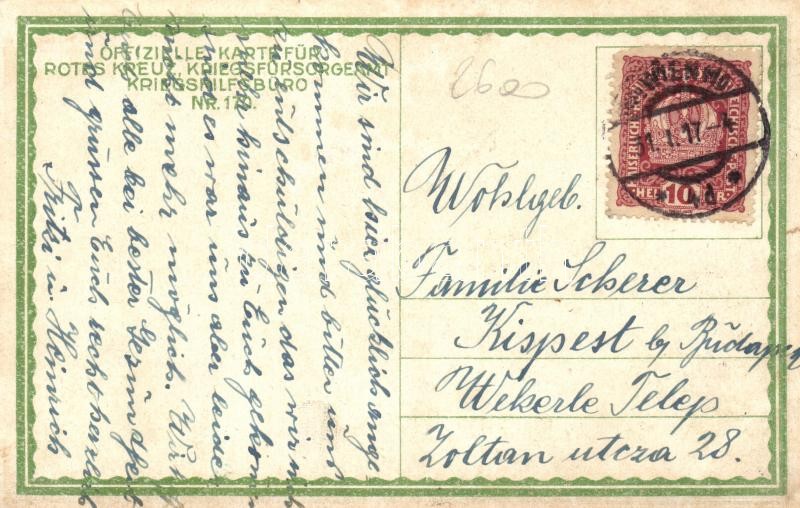 OFFIZIELLE KARTE FÜR
ROTES KREUZ, KRIEGSFÜRSORGEAMT
KRIEGSHILFSBÜRO
NR. 179.
2600
KAISERLICHE
REICHISCHE
HELLER
10
11. I. 17
* 4d *
Wohlgeb.
Familie Scherer
Kispest by Büdapest
Wekerle Telep
Zoltan utcza 28.
Wir sind hier glücklich ange-
kommen und bitten uns
zu entschuldigen das wir nicht
hinaus zu Euch gekom
es war uns aber leider
nicht mehr möglich.
alle bei bester Gesundheit
und grüssen Euch recht herzlich
Fritzi u. Heinrich